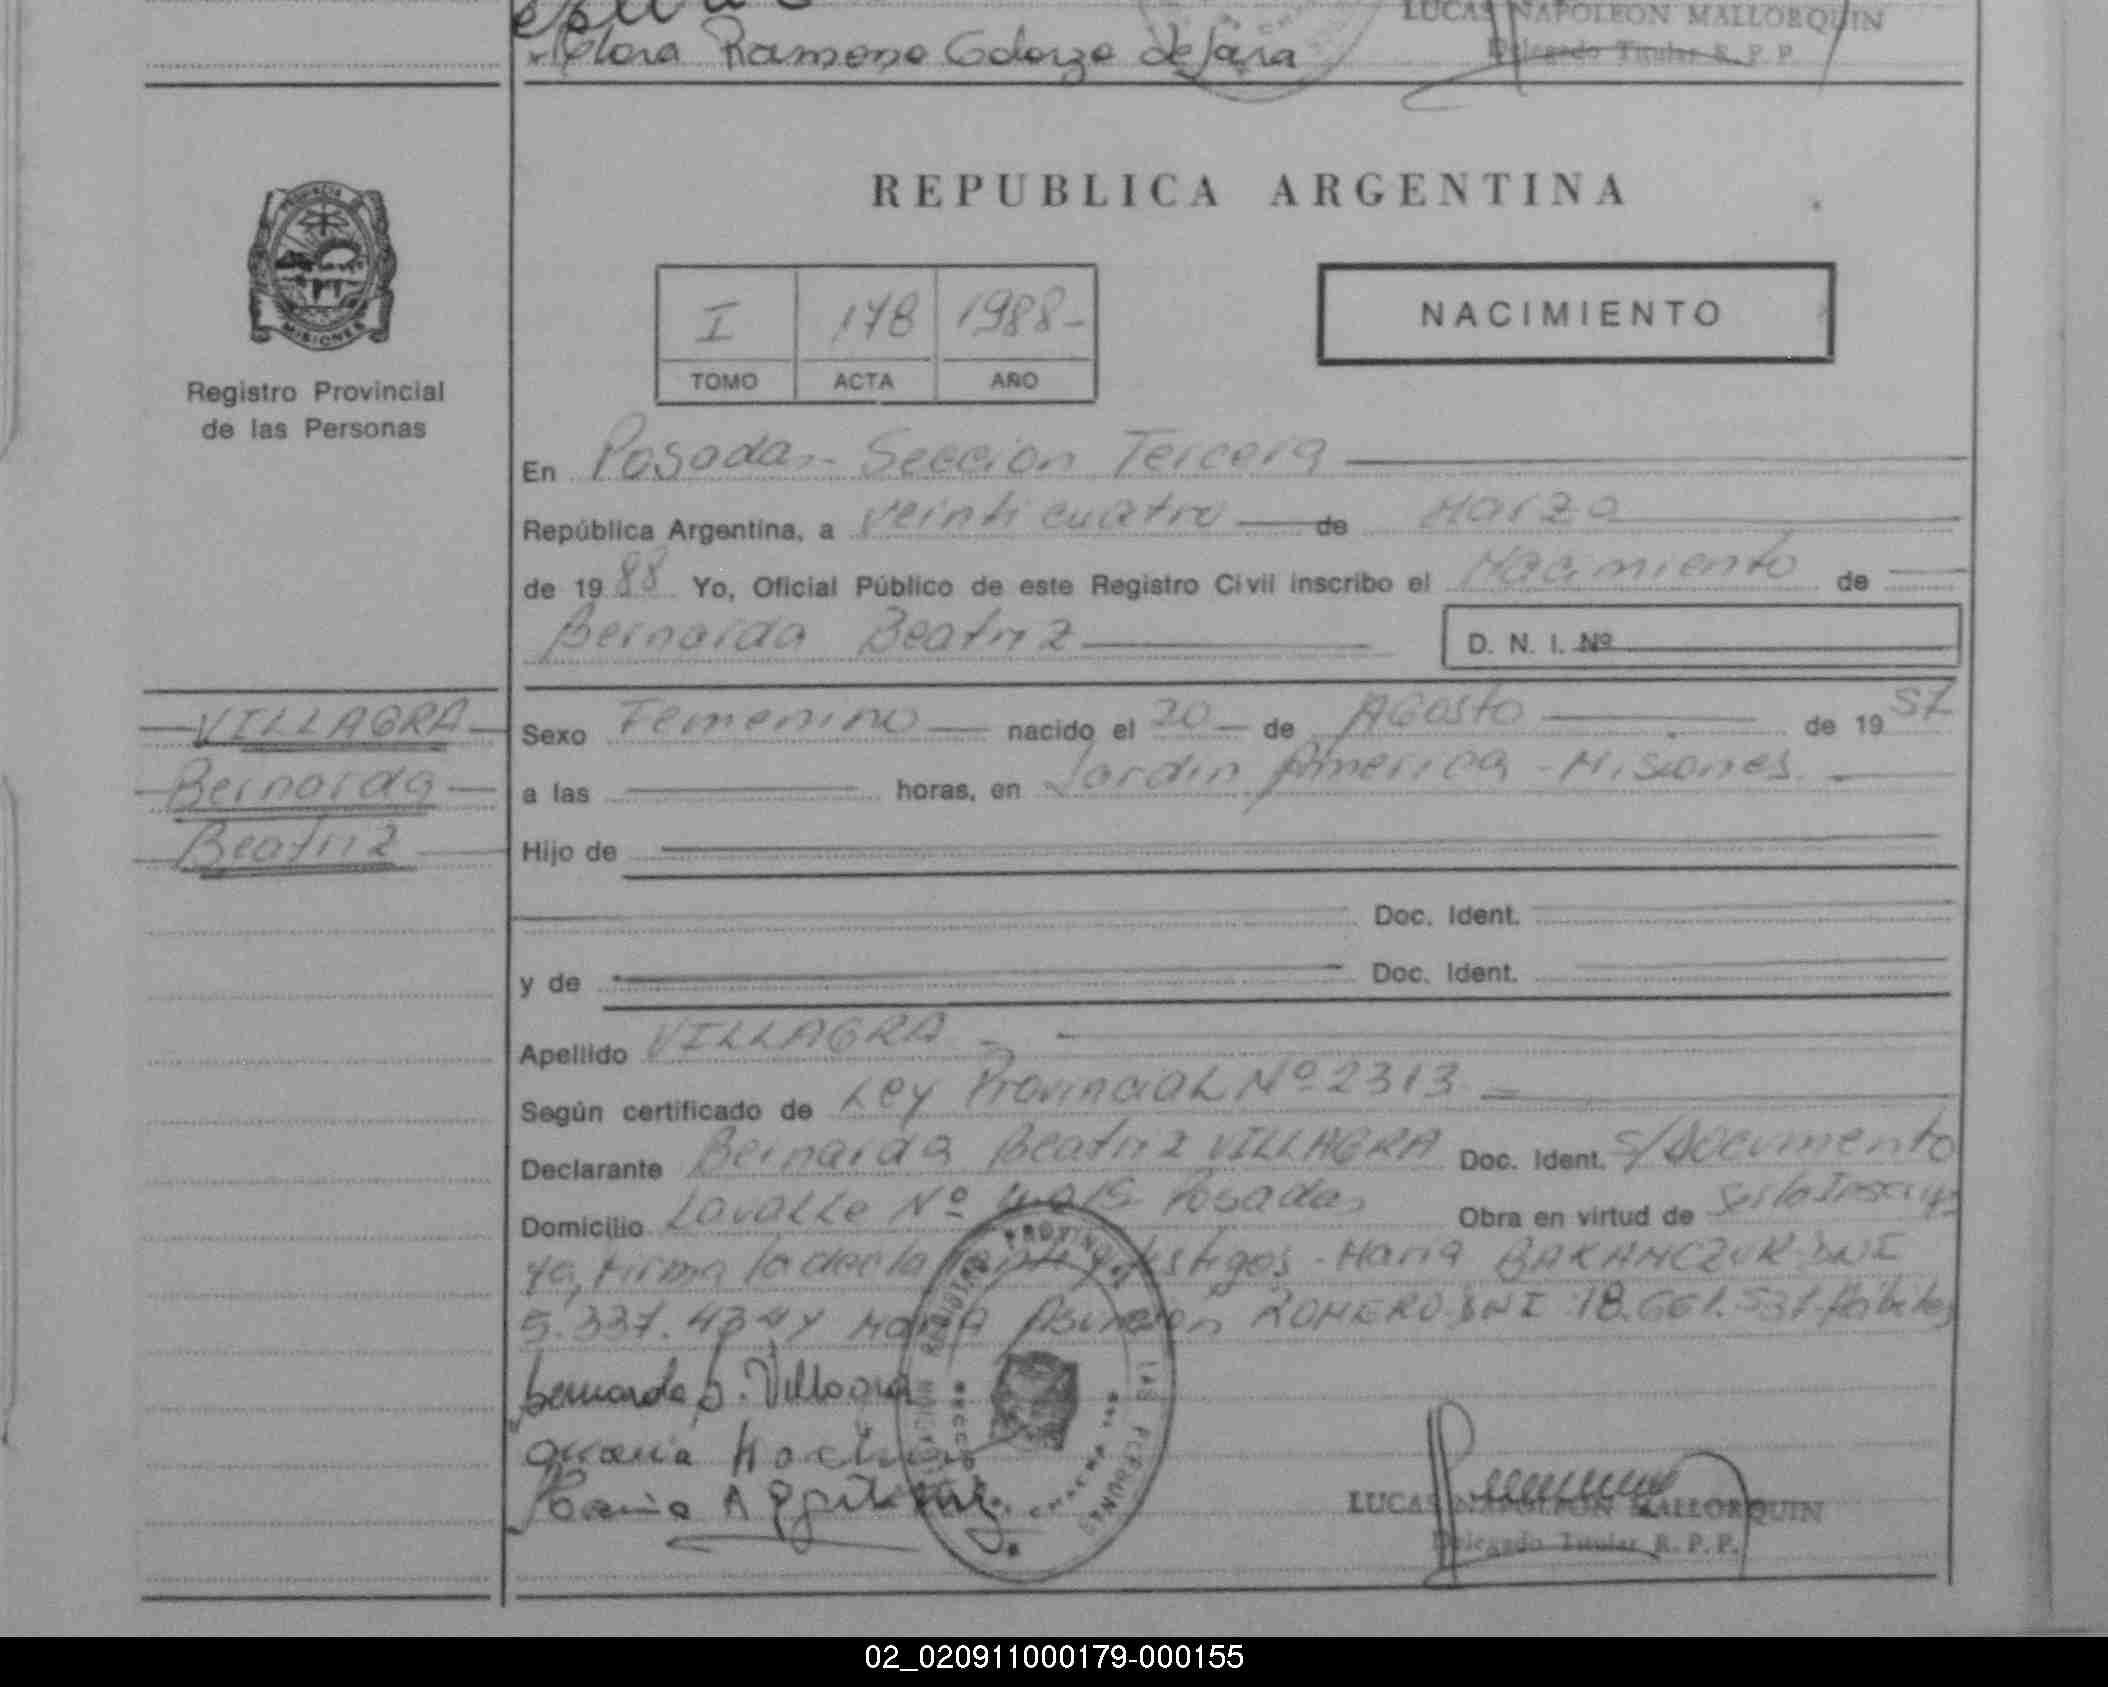 LUCAS NAPOLEON MALLORQUIN
Delegado Titular R. P. P.
Ramona de Jara
REPUBLICA ARGENTINA
PROVINCIA DE
MISIONES
Registro Provincial
de las Personas
I 178 1988-
TOMO ACTA AÑO
NACIMIENTO
En Posadas- Sección Tercera
República Argentina, a veinticuatro de Marzo
de 1988 Yo, Oficial Público de este Registro Civil inscribo el Nacimiento de
Bernarda Beatriz D. N. I. Nº
VILLAGRA
Bernarda
Beatriz
Sexo Femenino nacido el 20 de Agosto de 1957
a las horas, en Jardin America - Misiones
Hijo de
Doc. Ident.
y de Doc. Ident.
Apellido VILLAGRA
Según certificado de Ley Provincial Nº 2313
Declarante Bernarda Beatriz VILLAGRA Doc. Ident. s/documento
Domicilio Lavalle Nº Posadas Obra en virtud de
firma la testigos - Maria DNI
5.337. y Maria Asuncion ROMERO DNI 18.661.531
Bernarda B. Villagra
Maria
Maria A
REGISTRO PROVINCIAL DE LAS PERSONAS
LUCAS NAPOLEON MALLORQUIN
Delegado Titular R. P. P.
02_020911000179-000155